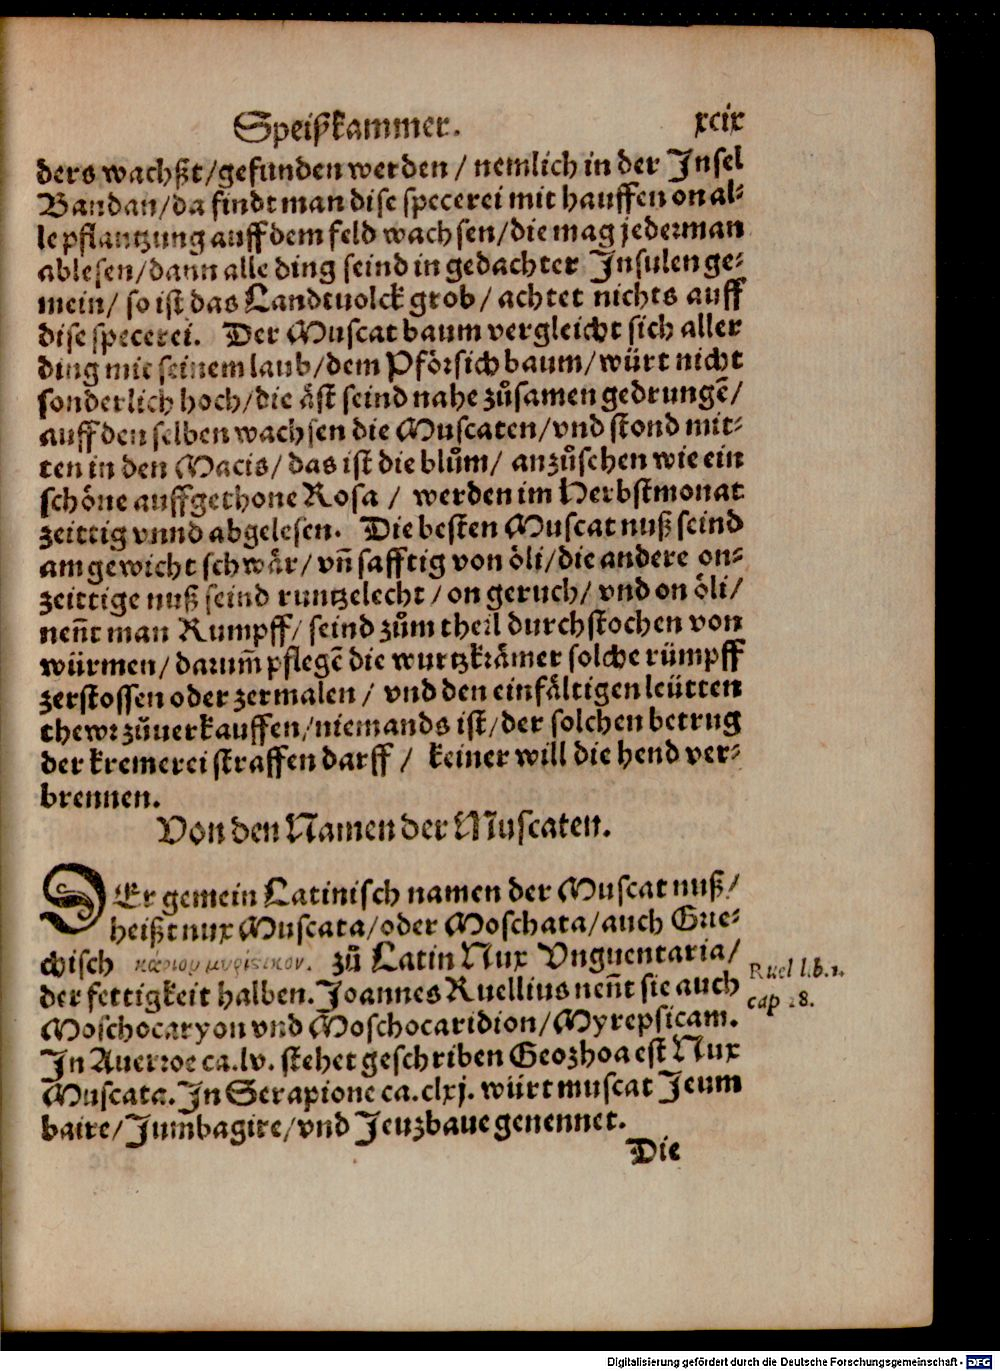 Speißkammer. xcix
ders wachßt/gefunden werden / nemlich in der Insel
Bandan/da findt man dise specerei mit hauffen on al-
le pflantzung auff dem feld wachsen/die mag jederman
ablesen/dann alle ding seind in gedachter Insulen ge-
mein/ so ist das Landtuolck grob/ achtet nichts auff
dise specerei. Der Muscat baum vergleicht sich aller
ding mit seinem laub/dem Pförsich baum/würt nicht
sonderlich hoch/die äst seind nahe zůsamen gedrungē/
auff den selben wachsen die Muscaten/vnd stond mit-
ten in den Macis/ das ist die blům/ anzůsehen wie ein
schöne auffgethone Rosa / werden im Herbstmonat
zeittig vnnd abgelesen. Die besten Muscat nuß seind
am gewicht schwär/ vñ safftig von öli/die andere on-
zeittige nuß seind runtzelecht / on geruch/ vnd on öli/
neñt man Rumpff/ seind zům theil durchstochen von
würmen/ darum̄ pflegē die wurtzkrämer solche rümpff
zerstossen oder zermalen / vnd den einfältigen leütten
thewr zůuerkauffen/niemands ist/der solchen betrug
der kremerei straffen darff / keiner will die hend ver-
brennen.
Von den Namen der Muscaten.
DEr gemein Latinisch namen der Muscat nuß/
heißt nux Muscata/oder Moschata/auch Grie-
chisch κάριον μυρεψικον. zů Latin Nux Vnguentaria/
der fettigkeit halben. Joannes Ruellius neñt sie auch
Moschocaryon vnd Moschocaridion/Myrepsicam.
In Auerroe ca.lv. stehet geschriben Geozhoa est Nux
Muscata. In Serapione ca.clxj. würt muscat Jeum
baire/Jumbagire/vnd Jeuzbaue genennet.
Die
Ruel l.b.1.
cap .8.
Digitalisierung gefördert durch die Deutsche Forschungsgemeinschaft - DFG